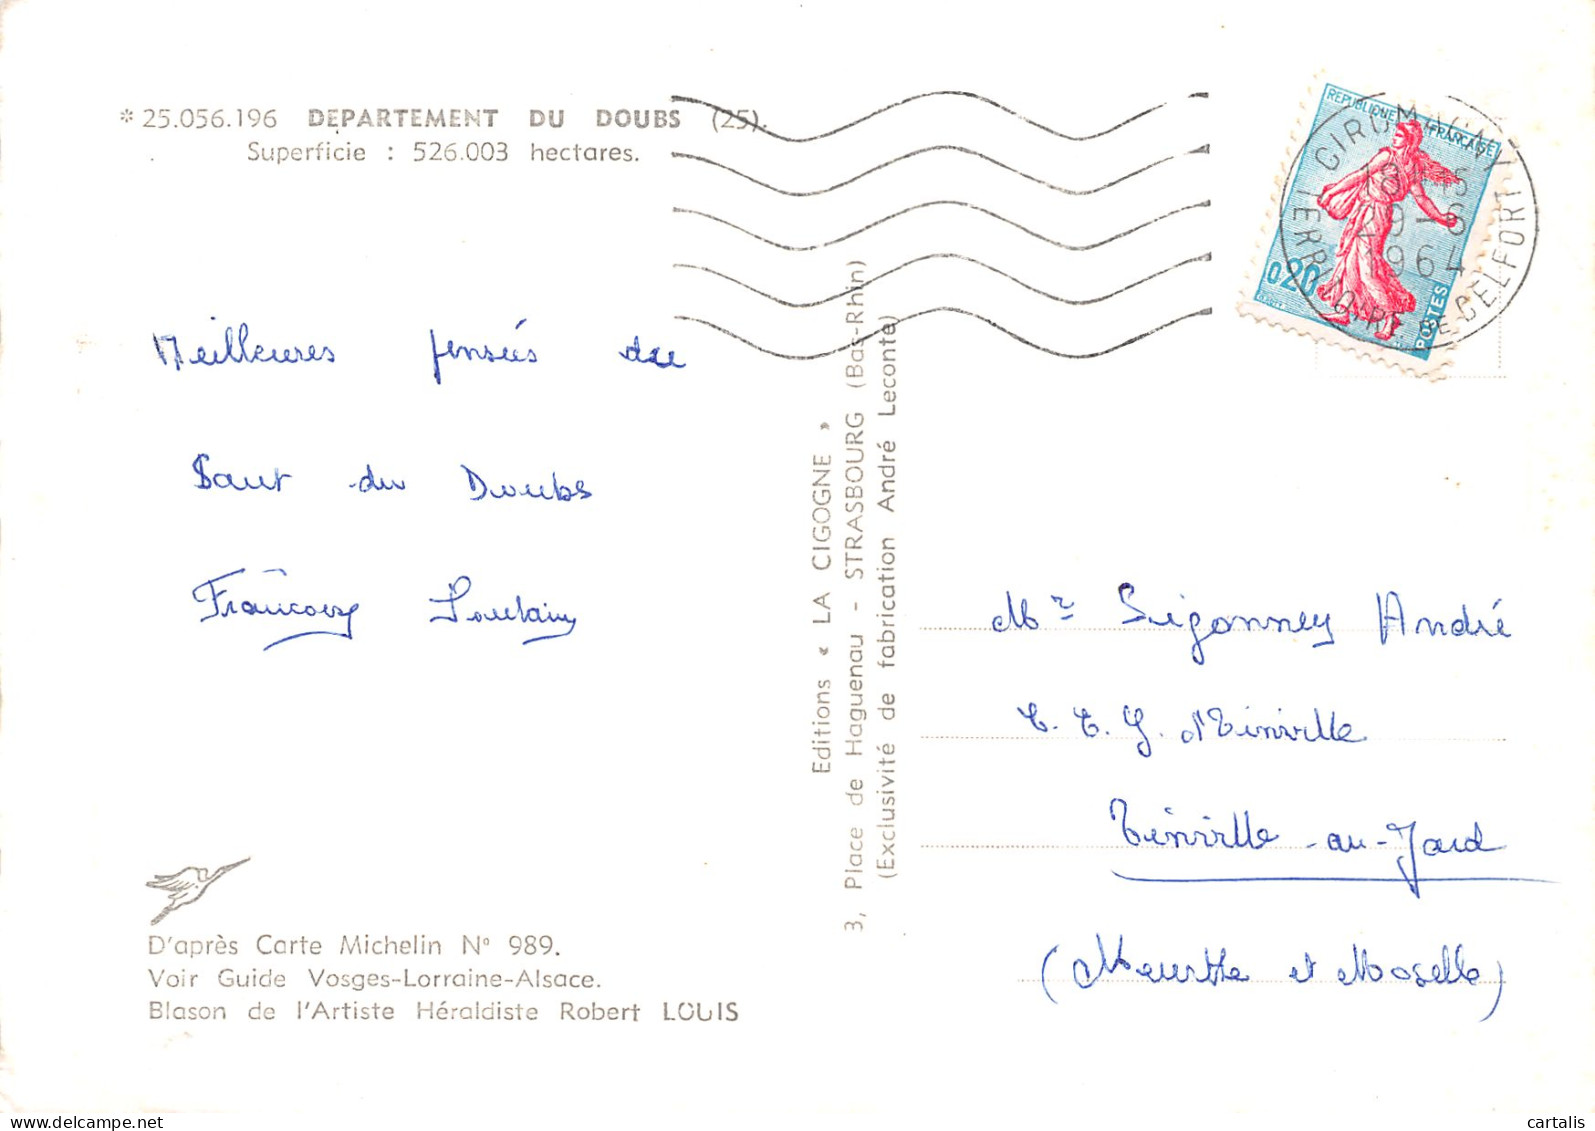 * 25.056.196 DEPARTEMENT DU DOUBS (25).
Superficie : 526.003 hectares.
REPUBLIQUE FRANCAISE
0,20
POSTES
GIROMAGNY
18H15
29-6
1964
TERRITOIRE DE BELFORT
Meilleures pensées du
Saut du Doubs
Editions « LA CIGOGNE »
3, Place de Haguenau - STRASBOURG (Bas-Rhin)
(Exclusivité de fabrication André Leconte)
Mr Sigonney André
C. E. G. Thinville
(Meurthe et Moselle)
D'après Carte Michelin N° 989.
Voir Guide Vosges-Lorraine-Alsace.
Blason de l'Artiste Héraldiste Robert LOUIS
cartalis